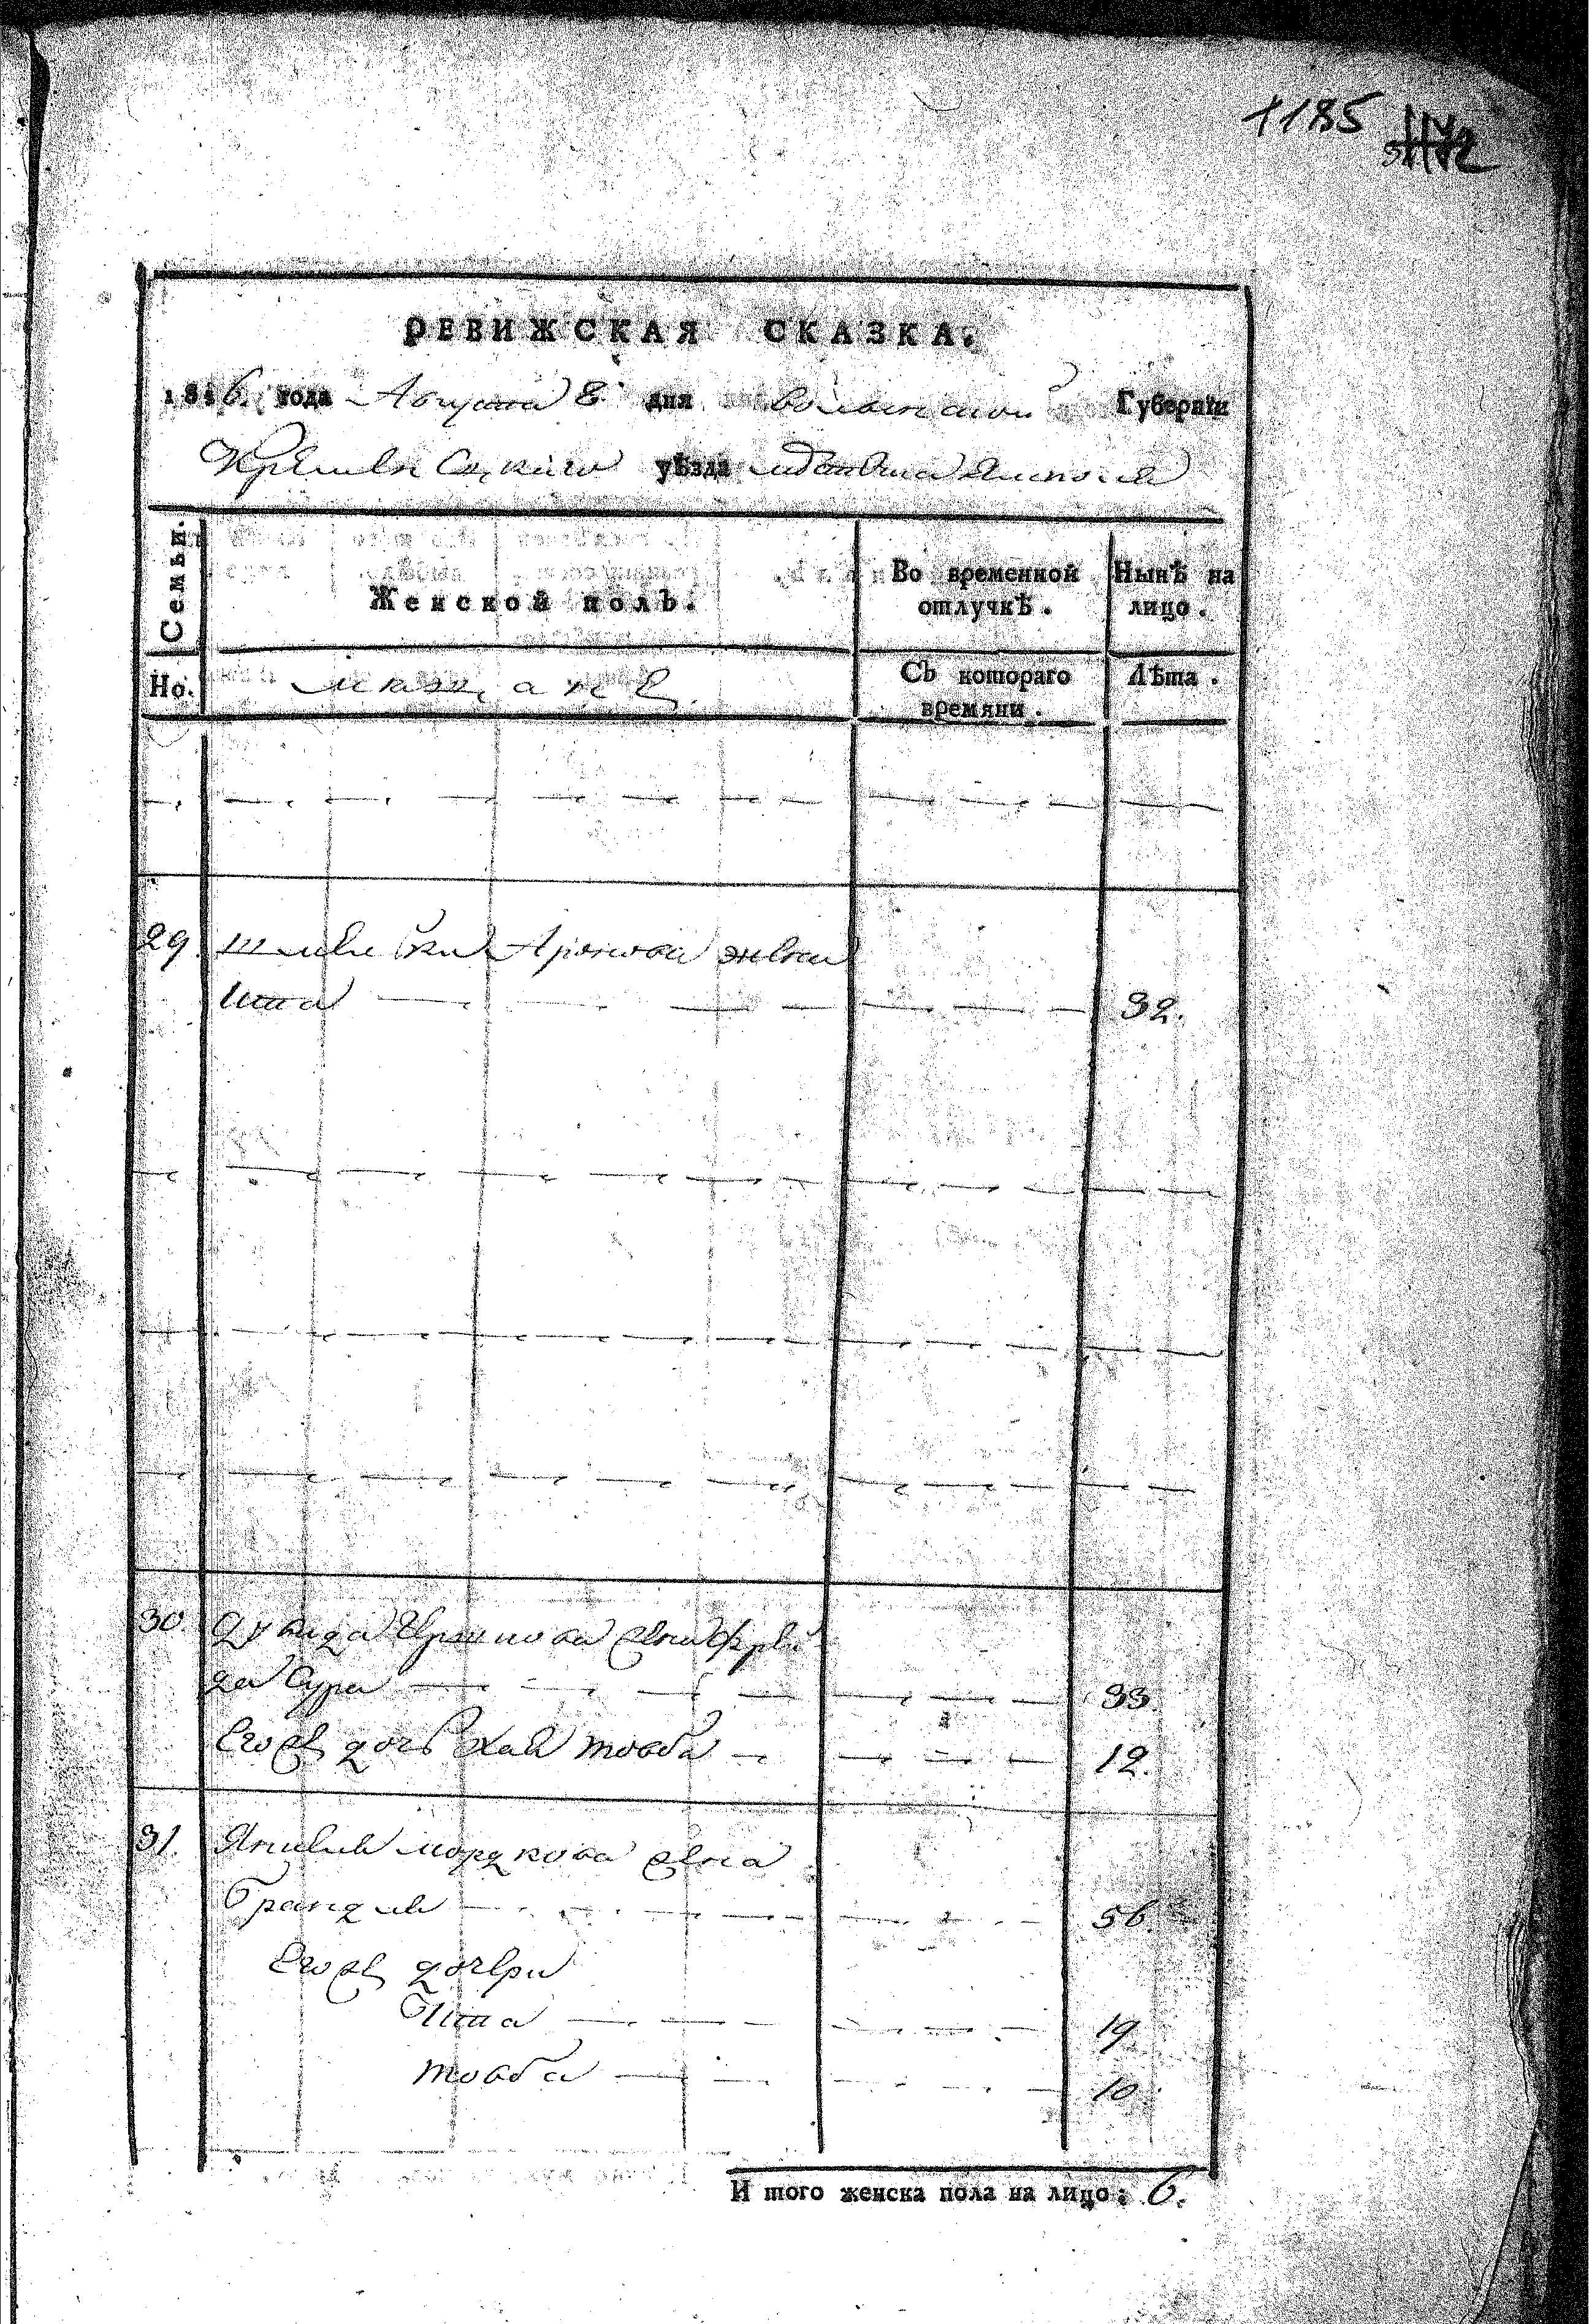 1185
РЕВИЖСКАЯ СКАЗКА.
1816. года Августа 8 дня Волынской Губернїи
Кременецкаго уѣзда местечка Ямполя
Семьи.
Женской полъ.
Во временной отлучкѣ.
Нынѣ на лицо.
Но.
мещане
Съ котораго времяни.
Лѣта.
29. Шмелька Аронова жена
Ита 32.
30. Дувида Ершкова жена Фрей
да Сура 33.
Его же дочь Хая товба 12.
31. мордкова жена
Брандля 56.
Его же дочери
Ита 19
товба 10
И того женска пола на лицо: 6.